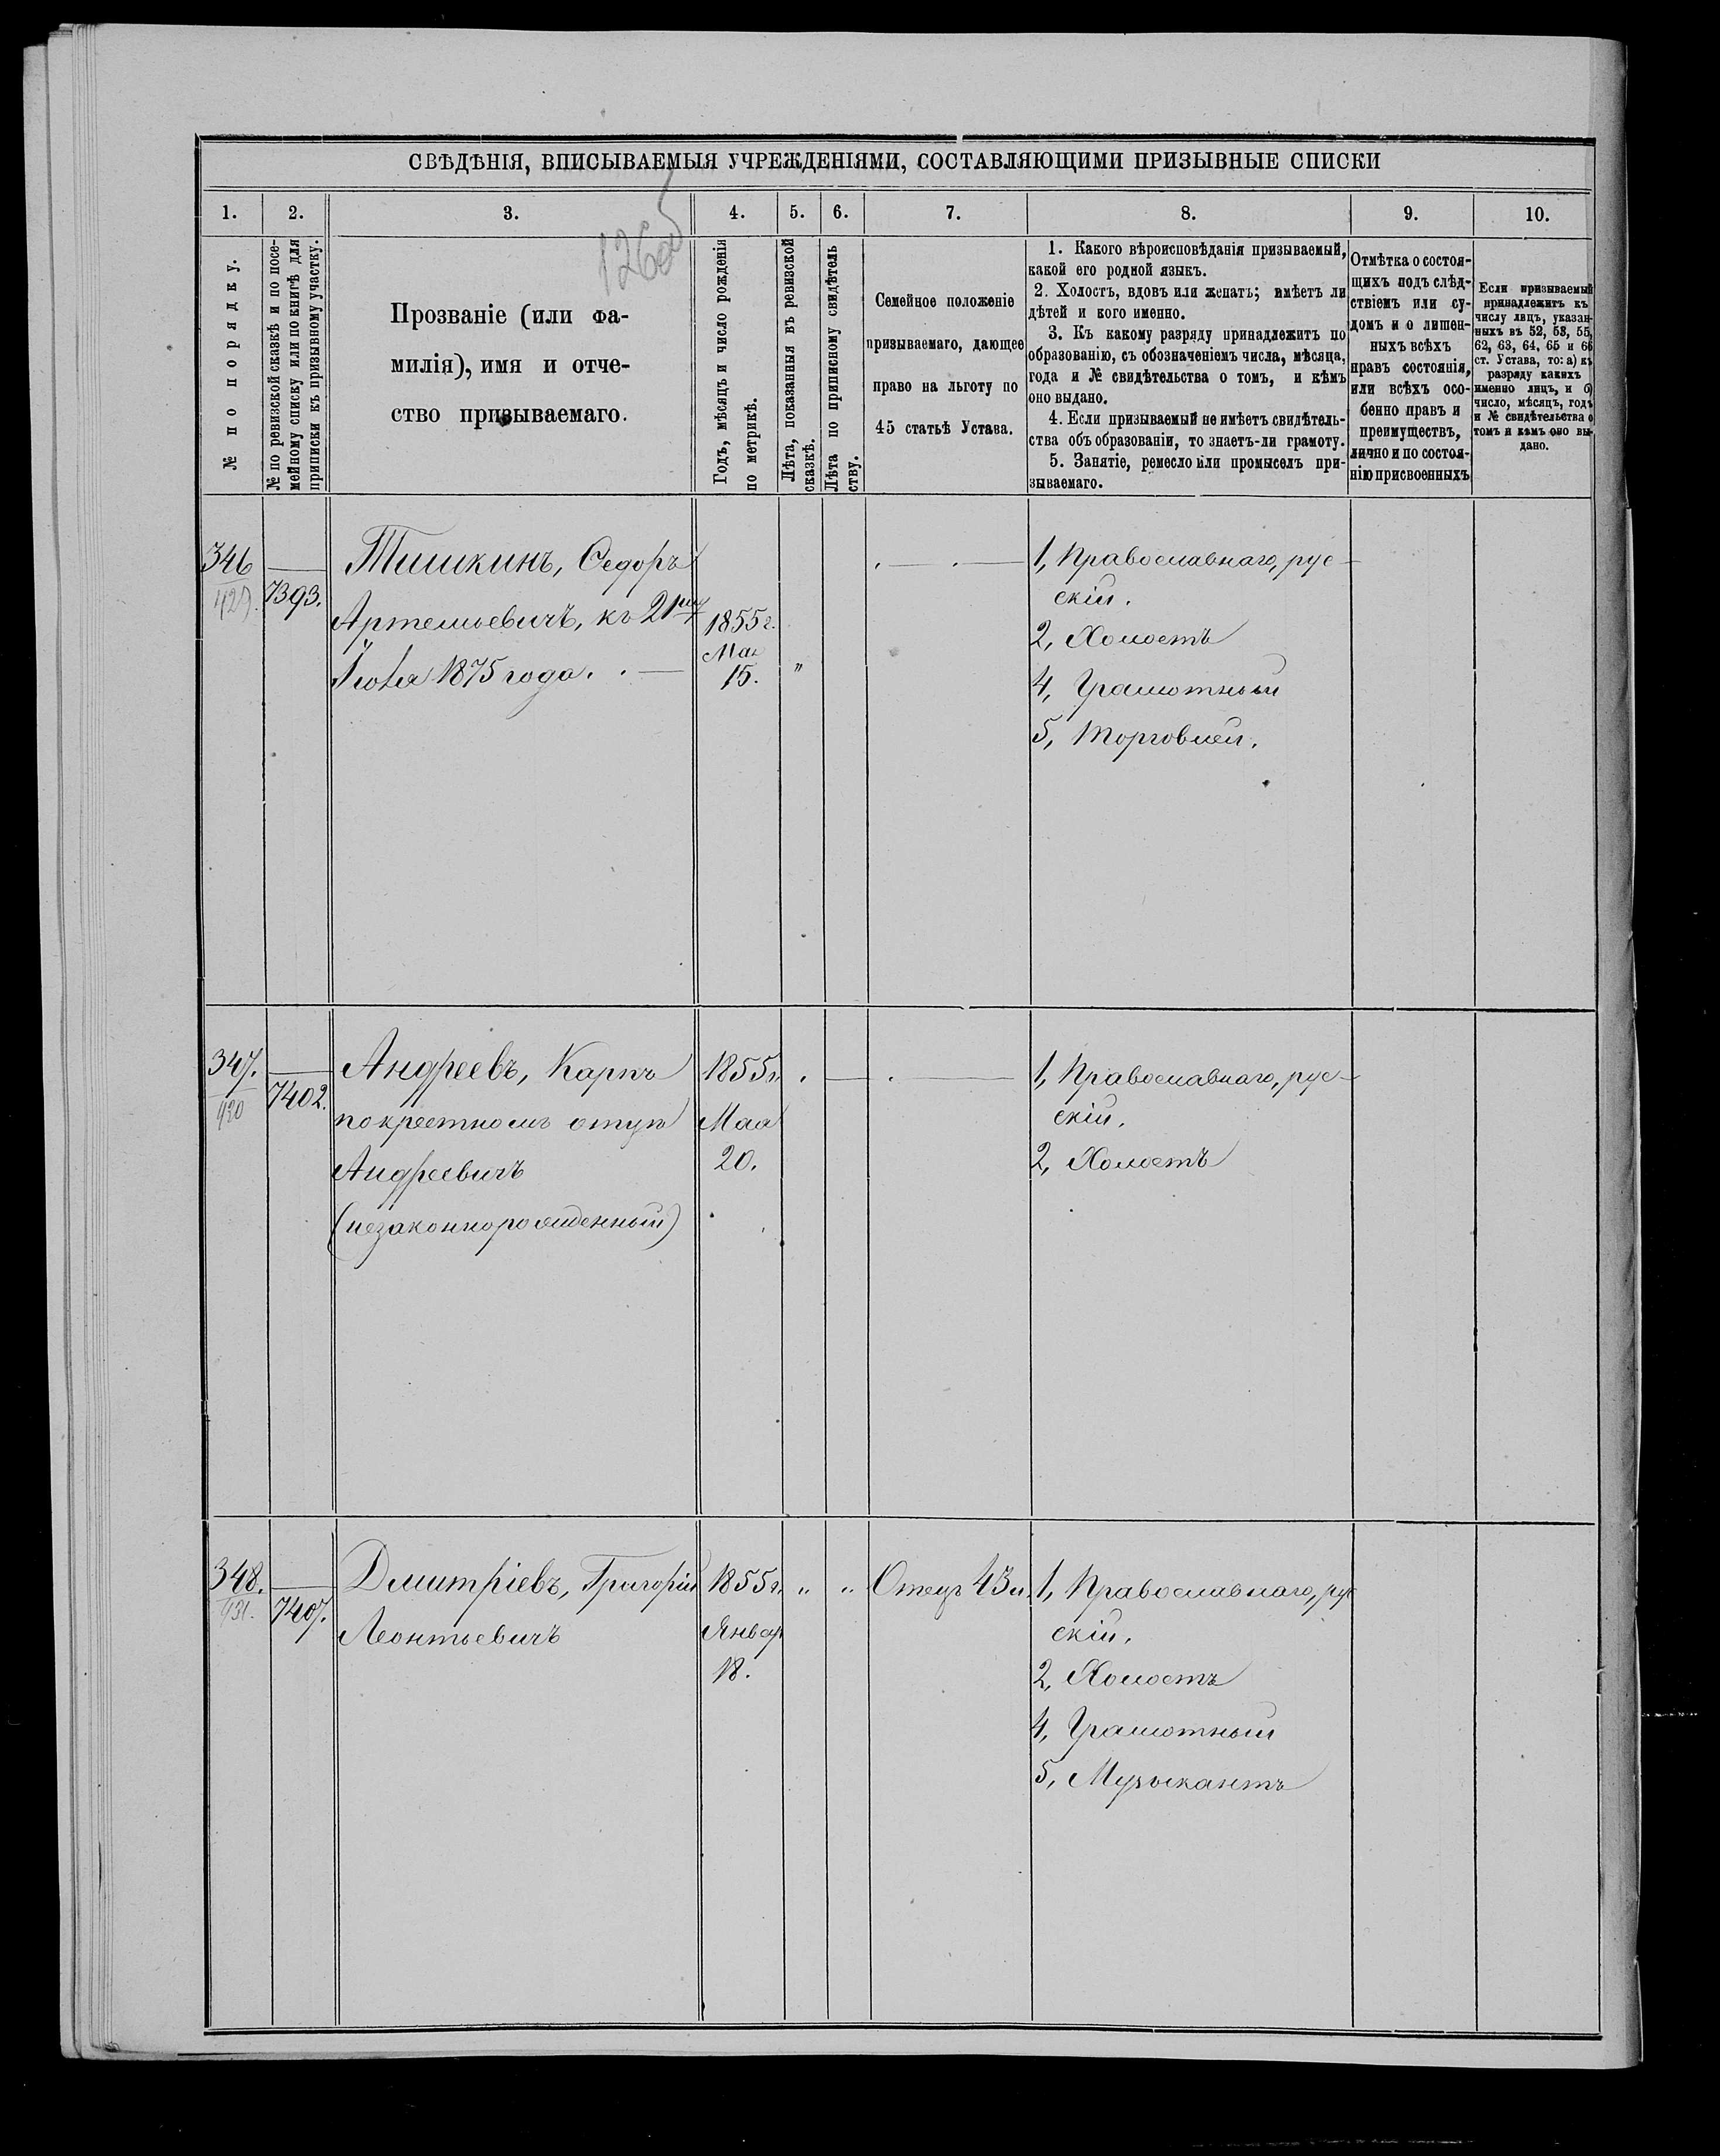 СВѢДѢНІЯ, ВПИСЫВАЕМЫЯ УЧРЕЖДЕНІЯМИ, СОСТАВЛЯЮЩИМИ ПРИЗЫВНЫЕ СПИСКИ
1. 2. 3. 4. 5. 6. 7. 8. 9. 10.
№ по порядку.
№ по ревизской сказкѣ и по посе-
мейному списку или по книгѣ для
приписки къ призывному участку.
Прозваніе (или фа-
милія), имя и отче-
ство призываемаго.
Годъ, мѣсяцъ и число рожденія
по метрикѣ.
Лѣта, показанныя въ ревизской
сказкѣ.
Лѣта по приписному свидѣтель
ству.
Семейное положеніе
призываемаго, дающее
право на льготу по
45 статьѣ Устава.
1. Какого вѣроисповѣданія призываемый,
какой его родной языкъ.
2. Холостъ, вдовъ или женатъ; имѣетъ ли
дѣтей и кого именно.
3. Къ какому разряду принадлежитъ по
образованію, съ обозначеніемъ числа, мѣсяца,
года и № свидѣтельства о томъ, и кѣмъ
оно выдано.
4. Если призываемый не имѣетъ свидѣтель-
ства объ образованіи, то знаетъ-ли грамоту.
5. Занятіе, ремесло или промыселъ при-
зываемаго.
Отмѣтка о состоя-
щихъ подъ слѣд-
ствіемъ или су-
домъ и о лишен-
ныхъ всѣхъ
правъ состоянія,
или всѣхъ осо-
бенно правъ и
преимуществъ,
лично и по состоя-
нію присвоенныхъ
Если призываемый
принадлежитъ къ
числу лицъ, указан-
ныхъ въ 52, 53, 55,
62, 63, 64, 65 и 66
ст. Устава, то: а) къ
разряду какихъ
именно лицъ, и б)
число, мѣсяцъ, годъ
и № свидѣтельства о
томъ и кѣмъ оно вы-
дано.
346
7393.
Тишкинъ, Ѳедоръ
Артемьевичъ, къ 21
Іюня 1875 года.
1855 г.
Мая
15.
"
1, Православнаго, рус-
скій.
2, Холостъ
4, Грамотный
5, Торговлей.
347.
420
7402.
Андреевъ, Карпъ
по крестномъ отцѣ
Андреевичъ
(незаконнорожденный)
1855 г.
Мая
20.
1, Православнаго, рус-
скій.
2, Холостъ
348.
431.
7407.
Дмитріевъ, Григорій
Леонтьевичъ
1855 г.
Январ
18.
" "
Отецъ 43 л.
1, Православнаго, рус
скій.
2, Холостъ
4, Грамотный
5, Музыкантъ